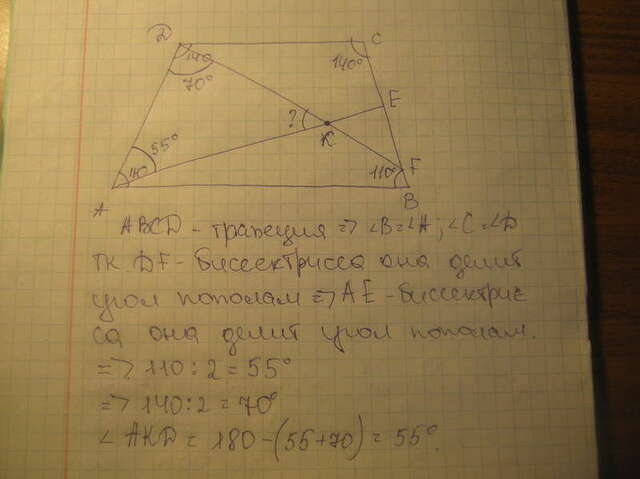 D
C
140
140°
70°
E
?
K
55°
40
110°
F
A
B
ABCD - трапеция => ∠B=∠A; ∠C=∠D
тк. DF - биссектрисса она делит
угол пополам => AE - биссектрис
са она делит угол пополам.
=> 110:2 = 55°
=> 140:2 = 70°
∠ AKD = 180-(55+70) = 55°.